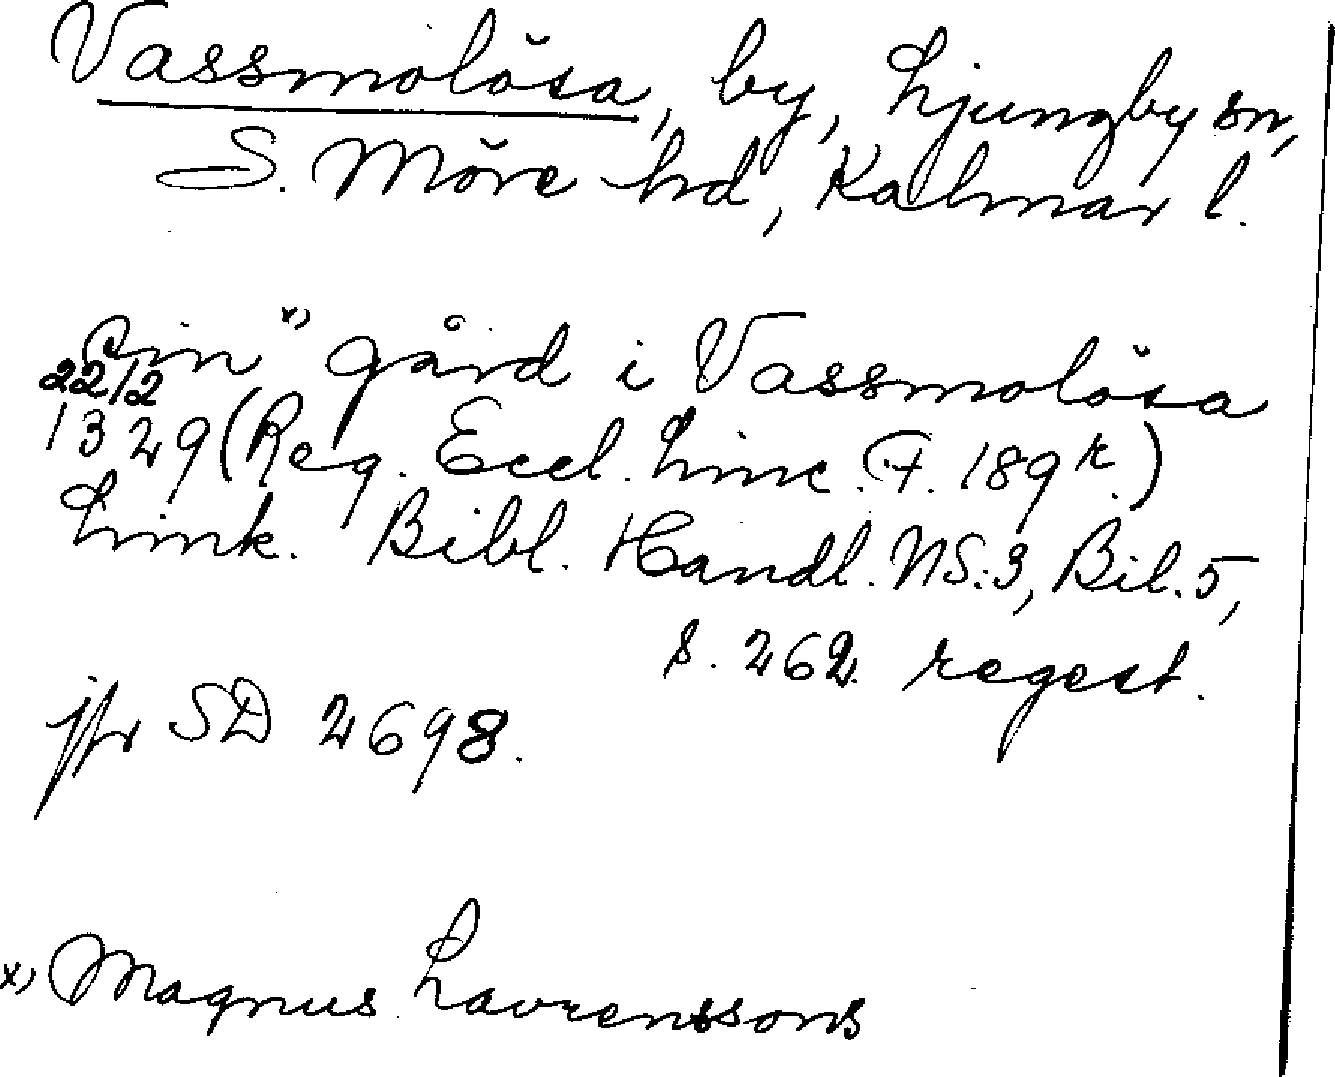 Vassmolösa, by, Ljungby sn,
S. Möre hd, Kalmar l.
sin x) gård i Vassmolösa
22/12
1329 (Reg. Eccl. Linc. F. 189 r.)
Link. Bibl. Handl. NS:3, Bil. 5,
s. 262 regest.
jfr SD 2698.
x) Magnus Lavrenssons